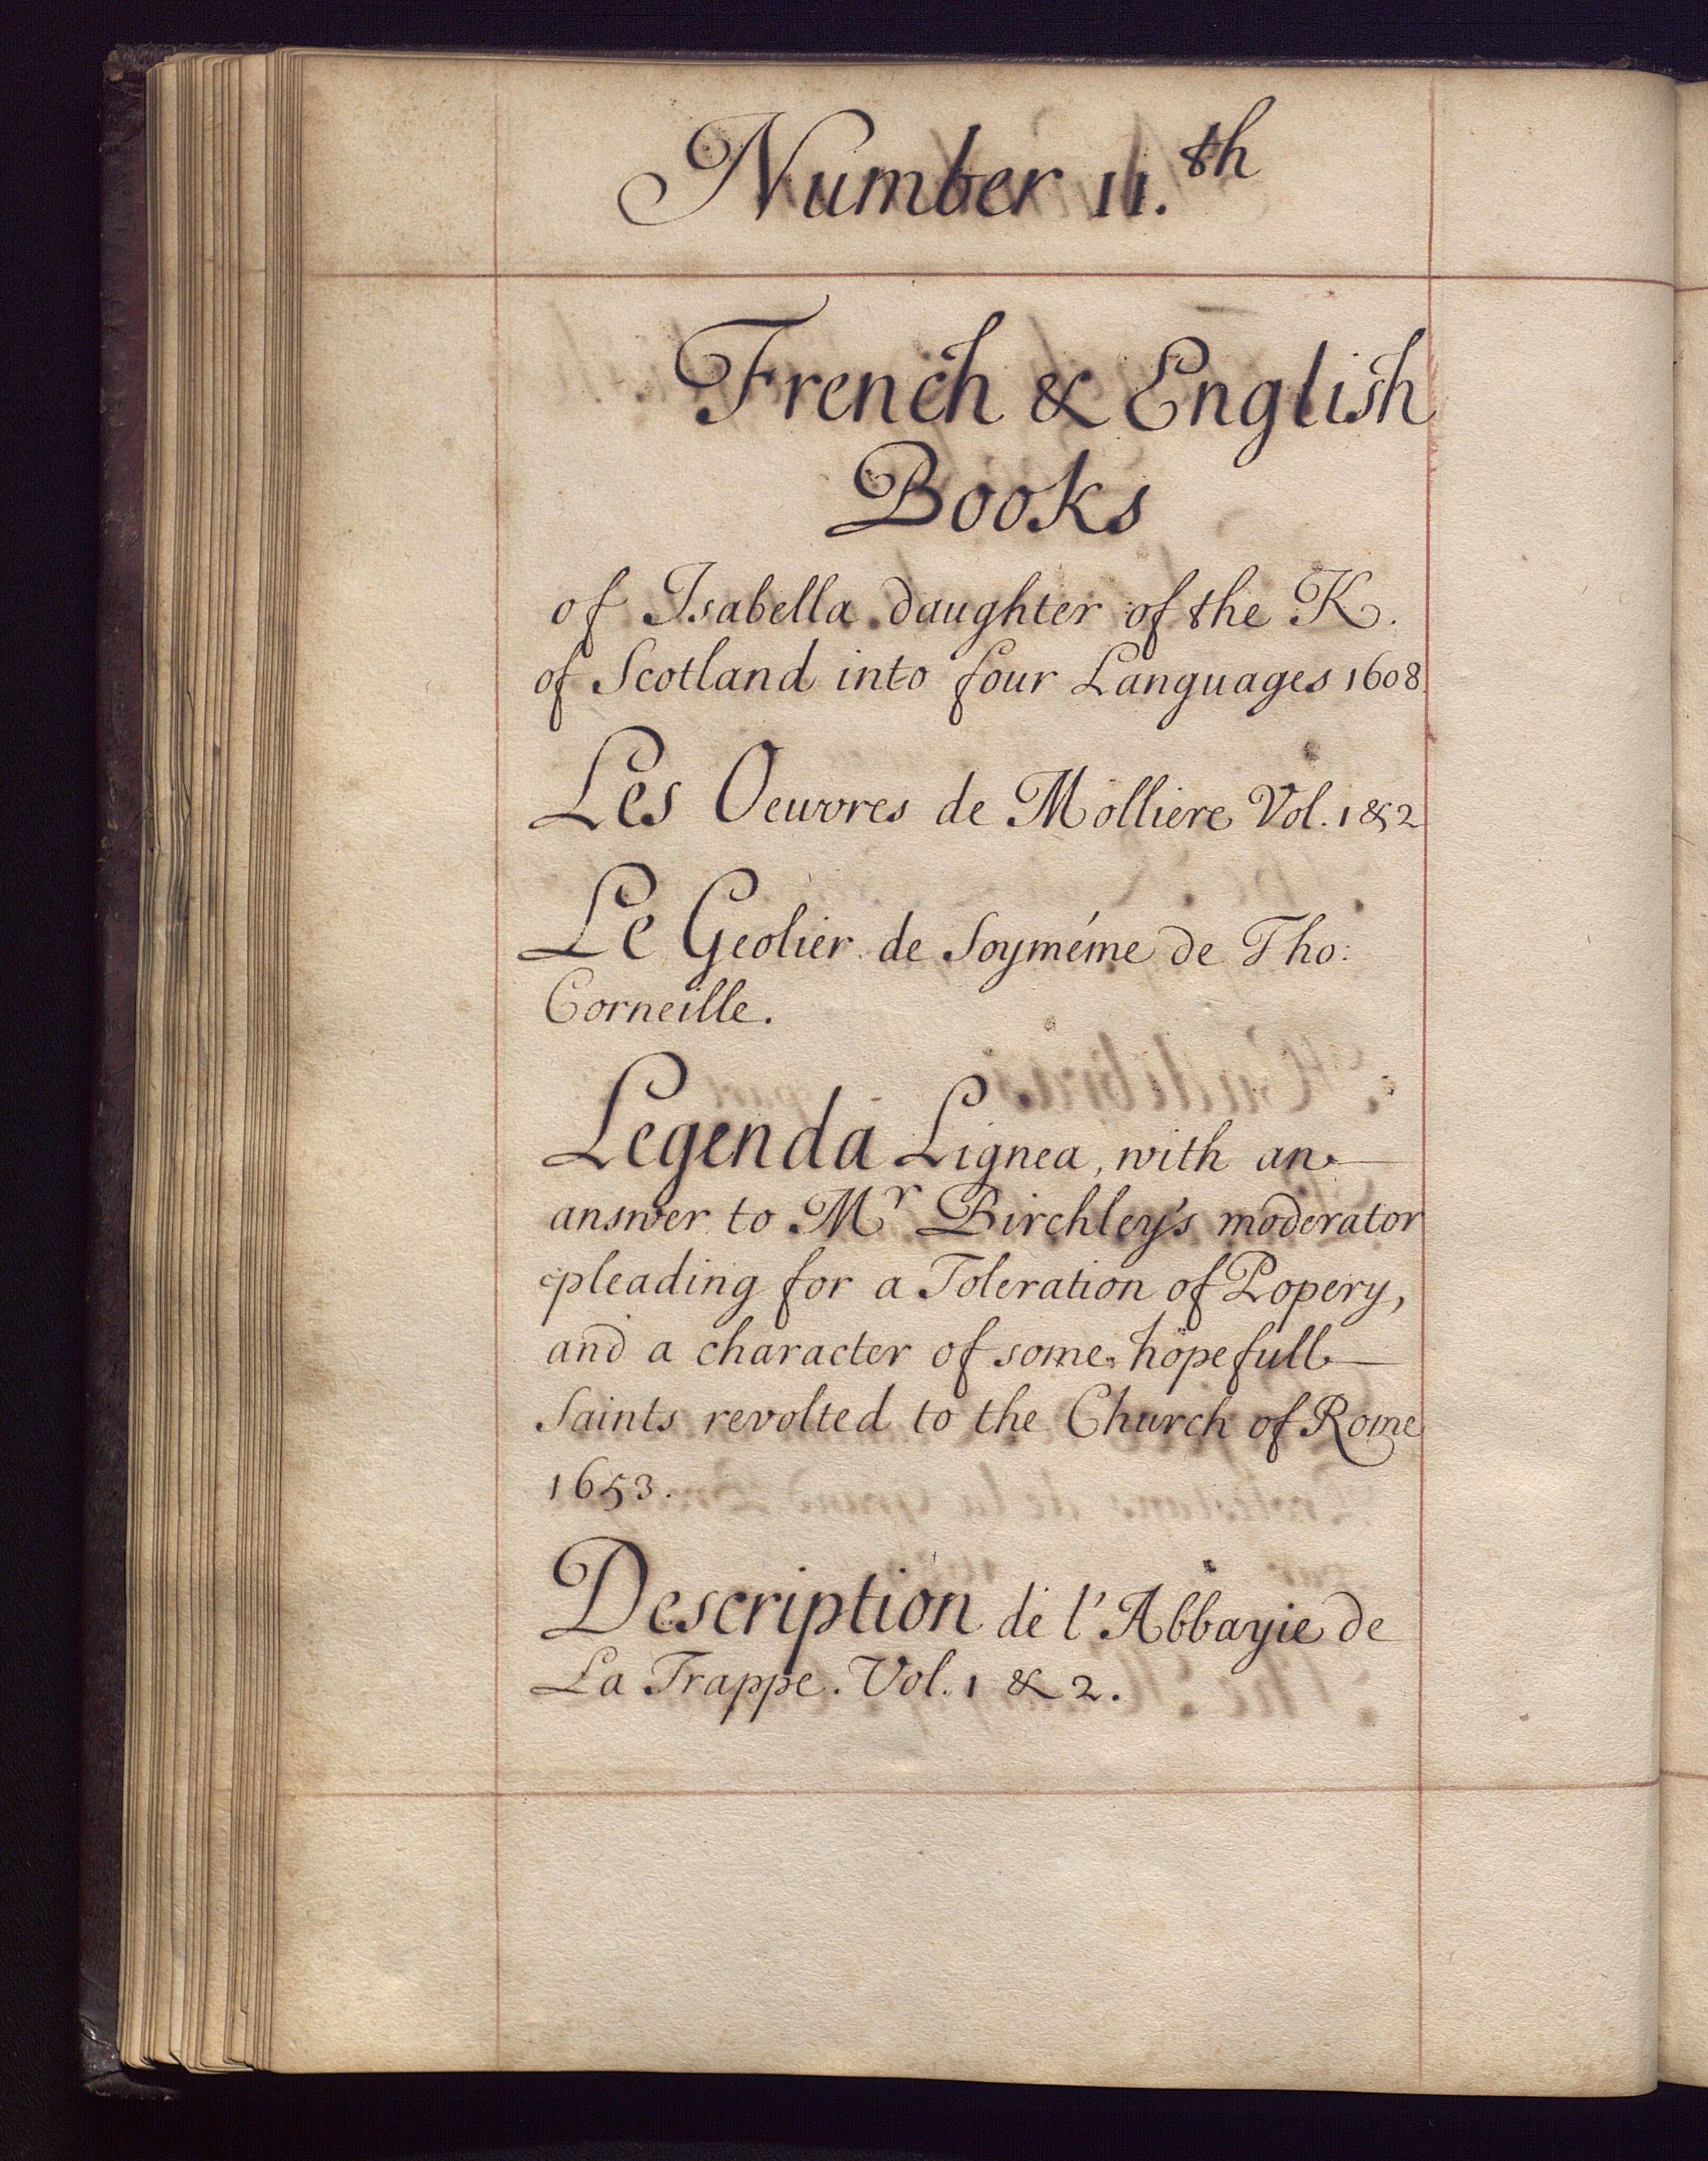 Number 11.th
French & English
Books
of Isabella daughter of the K.
of Scotland into four Languages 1608
Les Oeuvres de Molliere Vol. 1 & 2
Le Geolier de Soyméme de Tho:
Corneille.
Legenda Lignea, with an
answer to Mr Birchley's moderator
pleading for a Toleration of Popery,
and a character of some hopefull
Saints revolted to the Church of Rome
1653.
Description de l'Abbayie de
La Trappe. Vol. 1 & 2.